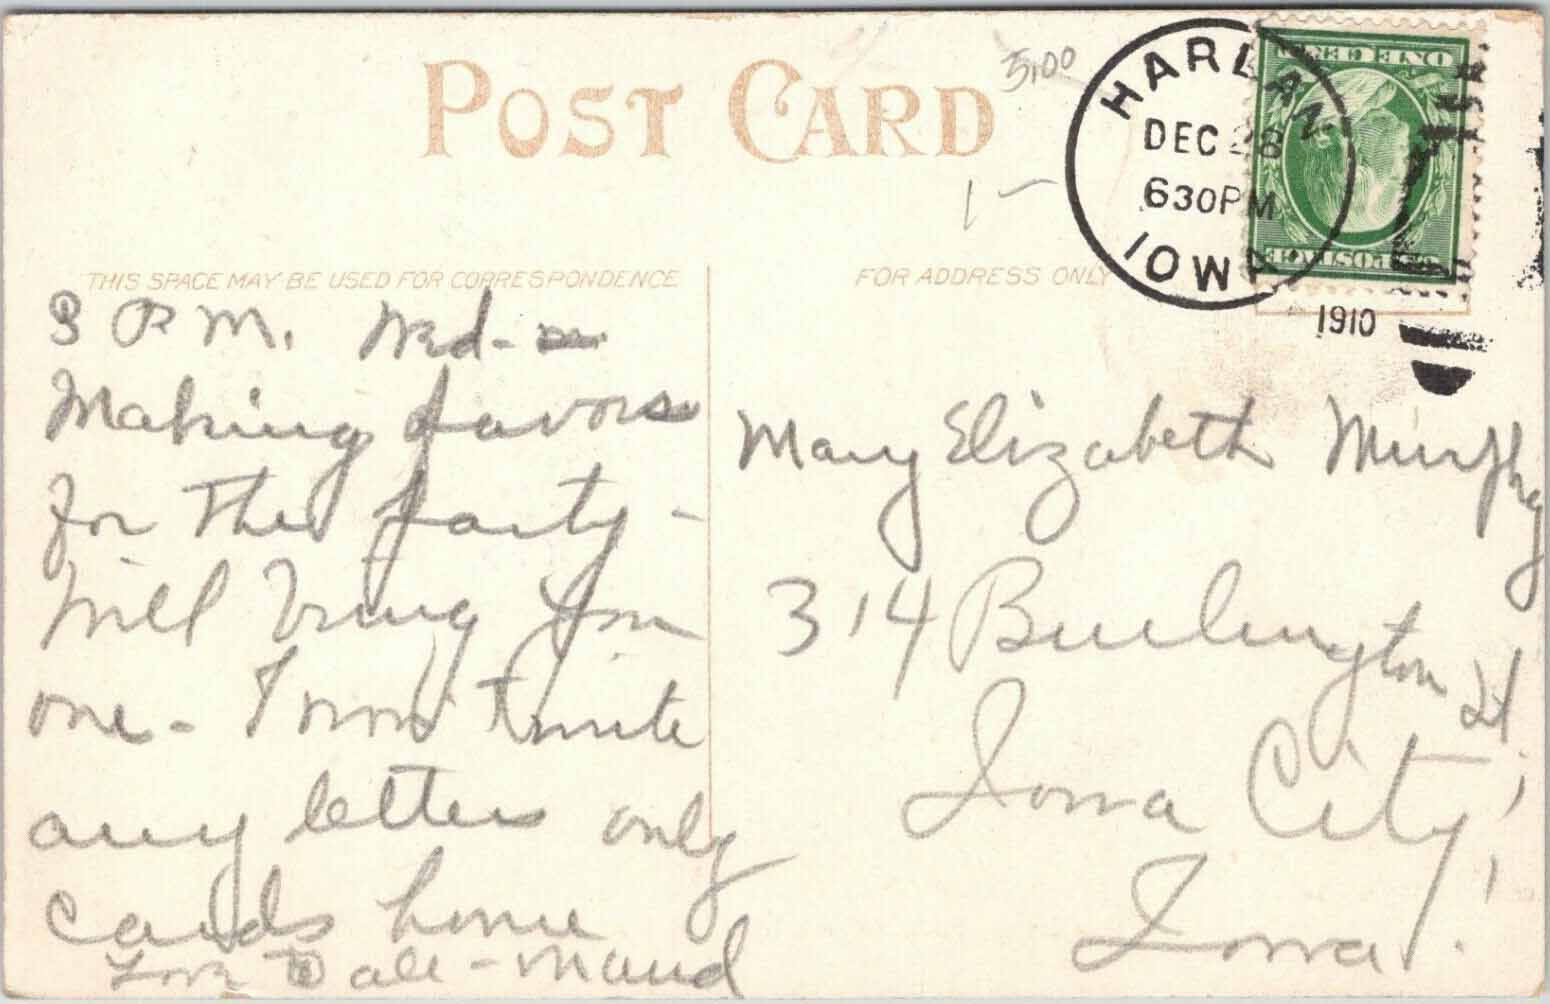 POST CARD
5.00
HARLAN
DEC 28
630PM
IOWA
1910
ONE CENT
U.S. POSTAGE
1-
THIS SPACE MAY BE USED FOR CORRESPONDENCE
FOR ADDRESS ONLY
3 P.M. Wed-
Making favors
for the party -
Will bring you
one - I won't write
any letters only
cards home
Love to all - Maud
Mary Elizabeth Murphy
314 Burlington St.
Iowa City,
Iowa.